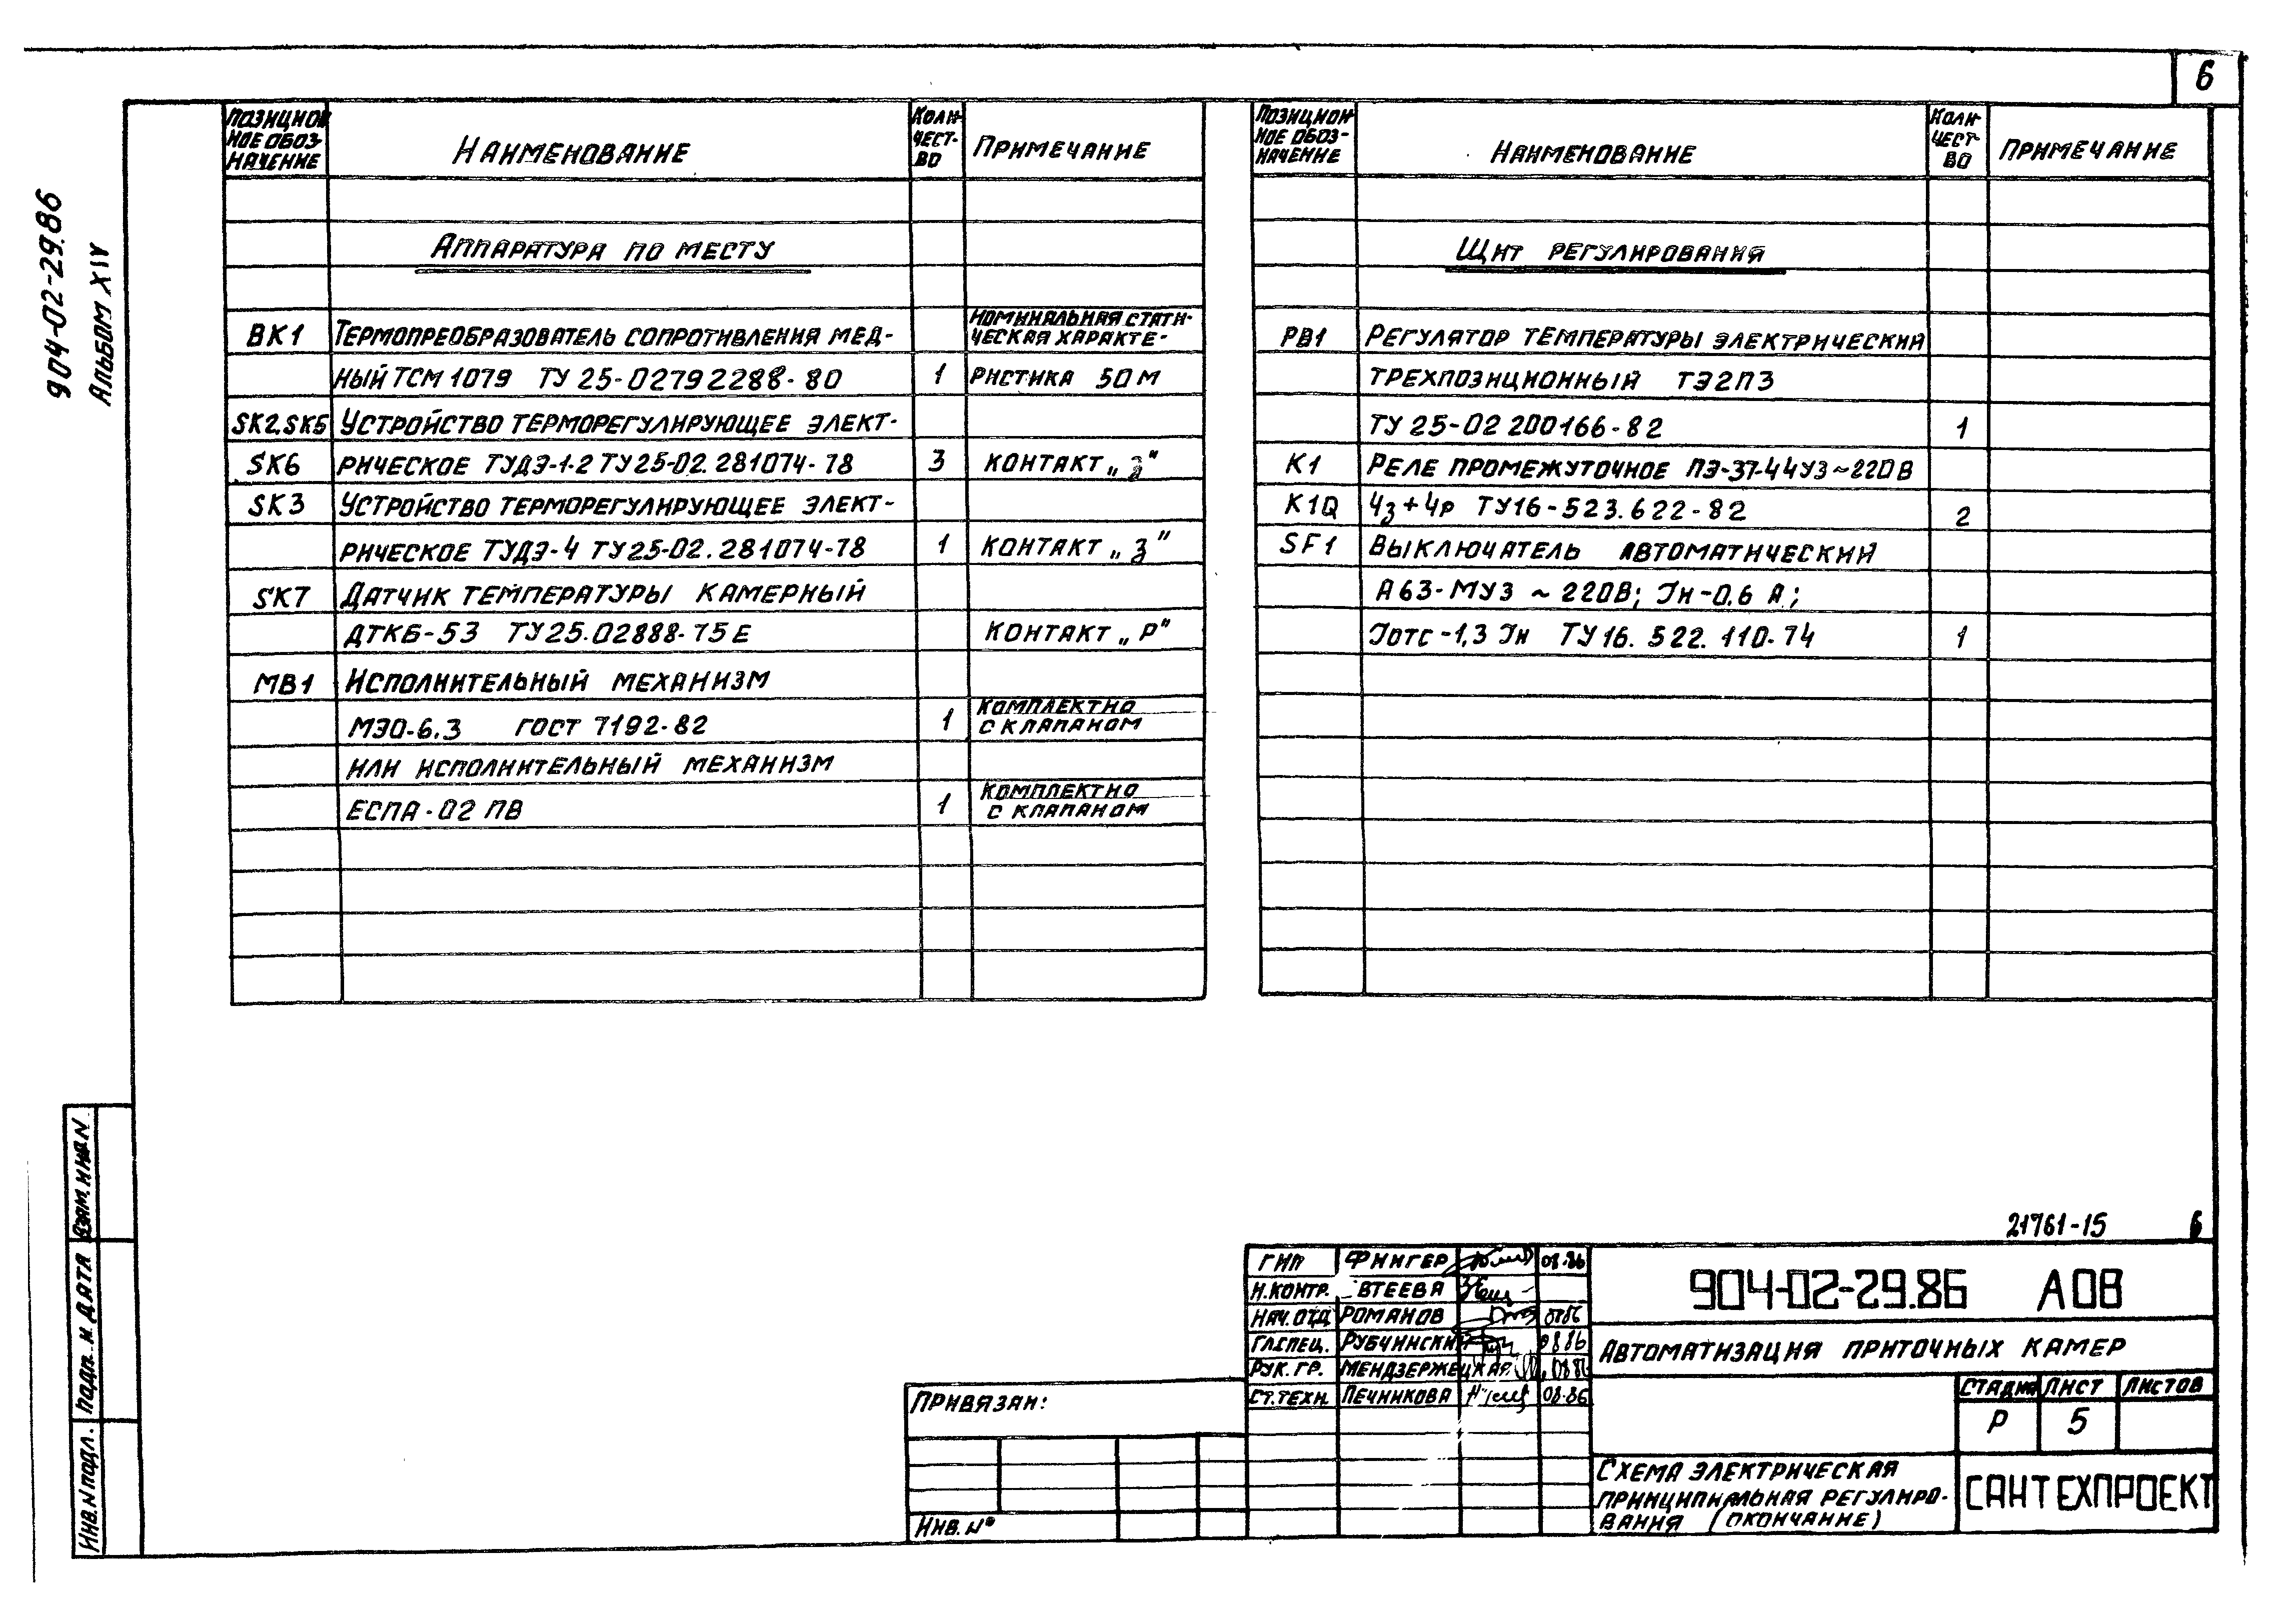 6
904-02-29.86
АЛЬБОМ XIV
ПОЗИЦИОН
НОЕ ОБОЗ-
НАЧЕНИЕ
НАИМЕНОВАНИЕ
КОЛИ-
ЧЕСТ-
ВО
ПРИМЕЧАНИЕ
АППАРАТУРА ПО МЕСТУ
ВК1 ТЕРМОПРЕОБРАЗОВАТЕЛЬ СОПРОТИВЛЕНИЯ МЕД- НОМИНАЛЬНАЯ СТАТИ-
ЧЕСКАЯ ХАРАКТЕ-
НЫЙ ТСМ 1079 ТУ 25-02792288-80 1 РИСТИКА 50М
SK2,SK5 УСТРОЙСТВО ТЕРМОРЕГУЛИРУЮЩЕЕ ЭЛЕКТ-
SK6 РИЧЕСКОЕ ТУДЭ-1-2 ТУ25-02.281074-78 3 КОНТАКТ „З"
SK3 УСТРОЙСТВО ТЕРМОРЕГУЛИРУЮЩЕЕ ЭЛЕКТ-
РИЧЕСКОЕ ТУДЭ-4 ТУ25-02.281074-78 1 КОНТАКТ „З"
SK7 ДАТЧИК ТЕМПЕРАТУРЫ КАМЕРНЫЙ
ДТКБ-53 ТУ25.02888-75Е КОНТАКТ „Р"
МВ1 ИСПОЛНИТЕЛЬНЫЙ МЕХАНИЗМ
МЭО-6.3 ГОСТ 7192-82 1 КОМПЛЕКТНО
С КЛАПАНОМ
ИЛИ ИСПОЛНИТЕЛЬНЫЙ МЕХАНИЗМ
ЕСПА-02 ПВ 1 КОМПЛЕКТНО
С КЛАПАНОМ
ПОЗИЦИОН-
НОЕ ОБОЗ-
НАЧЕНИЕ
НАИМЕНОВАНИЕ
КОЛИ-
ЧЕСТ-
ВО
ПРИМЕЧАНИЕ
ЩИТ РЕГУЛИРОВАНИЯ
РВ1 РЕГУЛЯТОР ТЕМПЕРАТУРЫ ЭЛЕКТРИЧЕСКИЙ
ТРЕХПОЗИЦИОННЫЙ ТЭ2П3
ТУ 25-02 200166-82 1
К1 РЕЛЕ ПРОМЕЖУТОЧНОЕ ПЭ-37-44У3 ~220В
К1Q 4з+4р ТУ16-523.622-82 2
SF1 ВЫКЛЮЧАТЕЛЬ АВТОМАТИЧЕСКИЙ
А63-МУ3 ~ 220В; Iн-0.6 А;
Iотс-1,3 Iн ТУ16.522.110-74 1
21761-15 6
ГИП ФИНГЕР 08.86
Н.КОНТР. ВТЕЕВА
НАЧ.ОТД РОМАНОВ 0886
ГЛ.СПЕЦ. РУБЧИНСКИЙ 0886
РУК. ГР. МЕНДЗЕРЖЕЦКАЯ 0886
СТ.ТЕХН. ПЕЧНИКОВА 08.86
904-02-29.86 АОВ
АВТОМАТИЗАЦИЯ ПРИТОЧНЫХ КАМЕР
СТАДИЯ ЛИСТ ЛИСТОВ
Р 5
СХЕМА ЭЛЕКТРИЧЕСКАЯ
ПРИНЦИПИАЛЬНАЯ РЕГУЛИРО-
ВАНИЯ (ОКОНЧАНИЕ)
САНТЕХПРОЕКТ
ПРИВЯЗАН:
ИНВ. №
ВЗАМ. ИНВ. N
ПОДП. И ДАТА
ИНВ. N ПОДЛ.